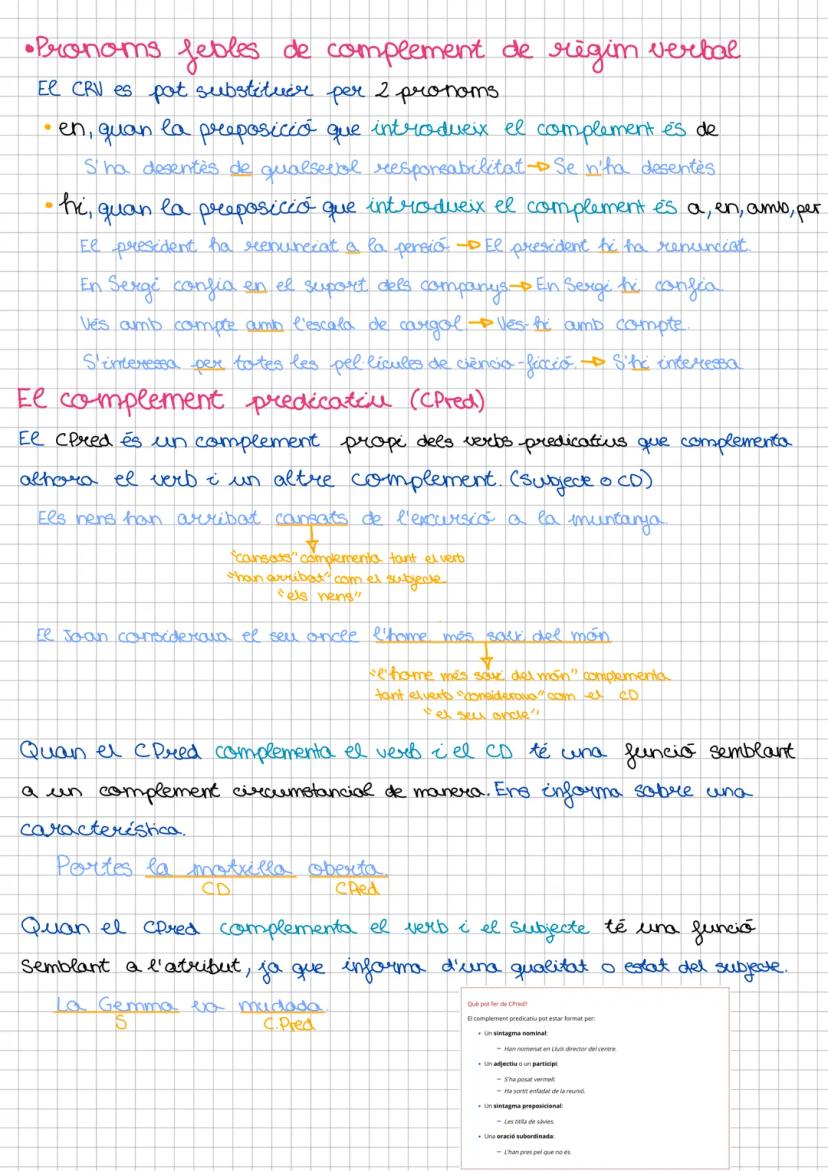 •Pronoms febles de complement de règim verbal
El CRV es pot substituir per 2 pronoms
• en, quan la preposició que introdueix el complement és de
S'ha desentès de qualsevol responsabilitat → Se n'ha desentès
• hi, quan la preposició que introdueix el complement és a, en, amb, per
El president ha renunciat a la pensió → El president hi ha renunciat.
En Sergi confia en el suport dels companys → En Sergi hi confia.
Vés amb compte amb l'escala de cargol → Vés-hi amb compte.
S'interessa per totes les pel·lícules de ciència-ficció. → S'hi interessa
El complement predicatiu (CPred)
El CPred és un complement propi dels verbs predicatius que complementa
alhora el verb i un altre complement. (Subjecte o CD)
Els nens han arribat cansats de l'excursió a la muntanya.
"cansats" complementa tant el verb
"han arribat" com el subjecte
"els nens"
El Joan considerava el seu oncle l'home més savi del món
"l'home més savi del món" complementa
tant el verb "considerava" com el CD
"el seu oncle"
Quan el CPred complementa el verb i el CD té una funció semblant
a un complement circumstancial de manera. Ens informa sobre una
característica.
Portes la motxilla oberta.
CD CPred
Quan el CPred complementa el verb i el subjecte té una funció
semblant a l'atribut, ja que informa d'una qualitat o estat del subjecte.
La Gemma va mudada.
S C.Pred
Què pot fer de CPred?
El complement predicatiu pot estar format per:
• Un sintagma nominal:
– Han nomenat en Lluís director del centre.
• Un adjectiu o un participi:
– S'ha posat vermell.
– Ha sortit enfadat de la reunió.
• Un sintagma preposicional:
– Les titlla de sàvies.
• Una oració subordinada:
– L'han pres pel que no és.